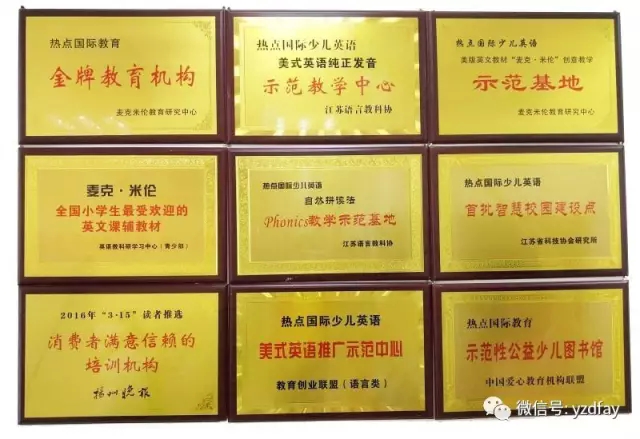 热点国际教育
金牌教育机构
麦克米伦教育研究中心
热点国际少儿英语
美式英语纯正发音
示范教学中心
江苏语言教科协
热点国际少儿英语
美版英文教材“麦克·米伦”创意教学
示范基地
麦克米伦教育研究中心
麦克·米伦
全国小学生最受欢迎的
英文课辅教材
英语教科研学习中心（青少部）
热点国际少儿英语
自然拼读法
Phonics教学示范基地
江苏语言教科协
热点国际少儿英语
首批智慧校园建设点
江苏省科技协会研究所
2016年“3·15”读者推选
消费者满意信赖的
培训机构
扬州晚报
热点国际少儿英语
美式英语推广示范中心
教育创业联盟（语言类）
热点国际教育
示范性公益少儿图书馆
中国爱心教育机构联盟
微信号: yzdfay